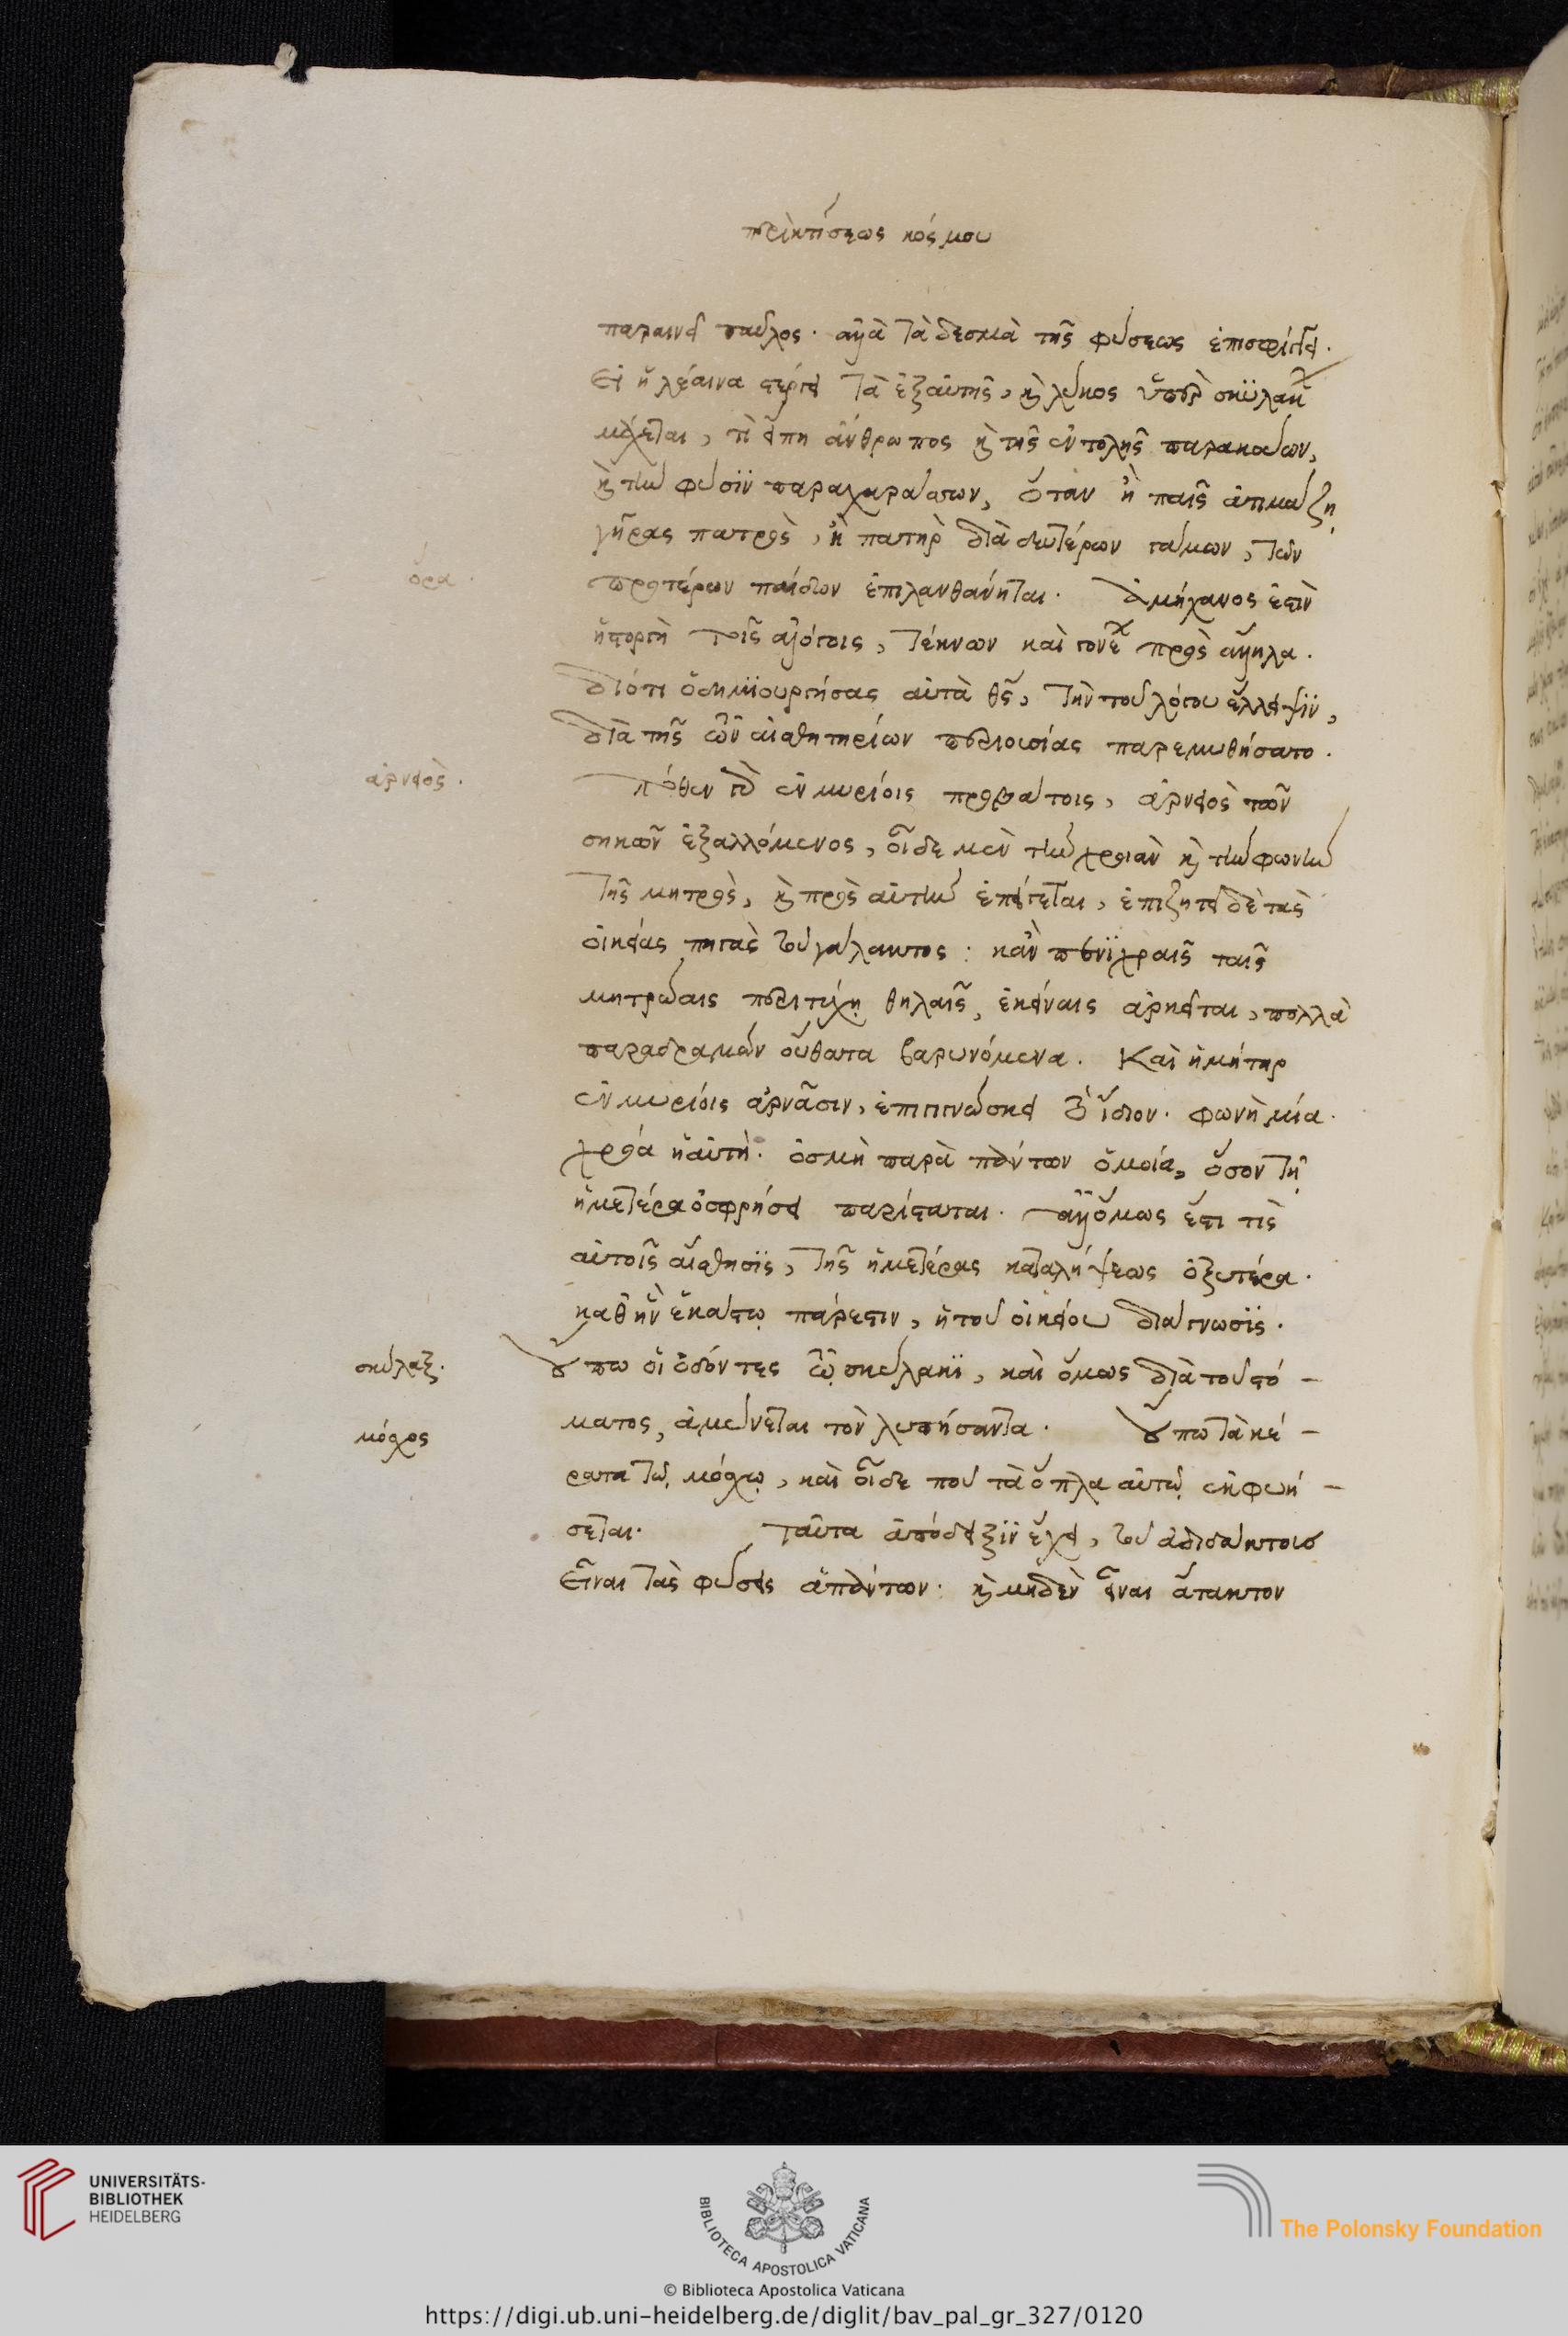 περὶ κτίσεως κόσμου
παραινεῖ παῦλος· ἀλλὰ τὰ δεσμὰ τῆς φύσεως ἐπισφίγγει.
Εἰ ἡ λέαινα στέργει τὰ ἐξ αὐτῆς, καὶ λύκος ὑπὲρ σκυλάκων
μάχεται, τί εἴπῃ ἄνθρωπος καὶ τῆς ἐντολῆς παρακούων,
καὶ τὴν φύσϊν παραχαράσσων, ὅταν ἢ παῖς ἀτιμάζῃ
γῆρας πατρὸς, ἢ πατὴρ διὰ δευτέρων γάμων, τῶν
ὅρα· προτέρων παίδων ἐπιλανθάνηται. Ἀμήχανος ἐστὶν
ἡ στοργὴ τοῖς ἀλόγοις, τέκνων καὶ γονέων πρὸς ἄλληλα.
διότι ὁ δημϊουργήσας αὐτὰ θς, τὴν τοῦ λόγου ἔλλειψϊν,
διὰ τῆς τῶν αἰσθητηρίων περιουσίας παρεμυθήσατο.
ἀρνειὸς· Πόθεν γὰρ ἐν μυρίοις προβάτοις, ἀρνειὸς τῶν
σηκῶν ἐξαλλόμενος, οἶδε μὲν τὴν χροιὰν καὶ τὴν φωνὴν
τῆς μητρὸς, καὶ πρὸς αὐτὴν ἐπείγεται, ἐπιζητεῖ δὲ τὰς
οἰκείας πηγὰς τοῦ γάλακτος: κἂν πενϊχραῖς ταῖς
μητρώαις περιτύχῃ θηλαῖς, ἐκείναις ἀρκεῖται, πολλὰ
παραδραμὼν οὔθατα βαρυνόμενα. Καὶ ἡ μήτηρ
ἐν μυρίοις ἀρνᾶσιν, ἐπιγινώσκει τὸ ἴδιον. φωνὴ μία.
χρόα ἡ αὐτή. ὀσμὴ παρὰ πάντων ὁμοία, ὅσον τῇ
ἡμετέρα ὀσφρήσει παρίσταται. ἀλλ' ὅμως ἔστι τὶς
αὐτοῖς αἴσθησϊς, τῆς ἡμετέρας καταλήψεως ὀξυτέρα.
καθ' ἣν ἑκάστῳ πάρεστιν, ἡ τοῦ οἰκείου διάγνωσϊς.
σκύλαξ. οὔπω οἱ ὀδόντες τῷ σκύλακϊ, καὶ ὅμως διὰ τοῦ στό-
ματος, ἀμύνεται τὸν λυπήσαντα. οὔπω τὰ κέ-
μόσχος ρατα τῷ μόσχῳ, καὶ οἶδε ποῦ τὰ ὅπλα αὐτῷ ἐκφυή-
σεται. ταῦτα ἀπόδειξϊν ἔχει, τοῦ ἀδιδάκτους
εἶναι τὰς φύσεις ἁπάντων. καὶ μηδὲν εἶναι ἄτακτον
UNIVERSITÄTS-
BIBLIOTHEK
HEIDELBERG
BIBLIOTECA APOSTOLICA VATICANA
The Polonsky Foundation
© Biblioteca Apostolica Vaticana
https://digi.ub.uni-heidelberg.de/diglit/bav_pal_gr_327/0120